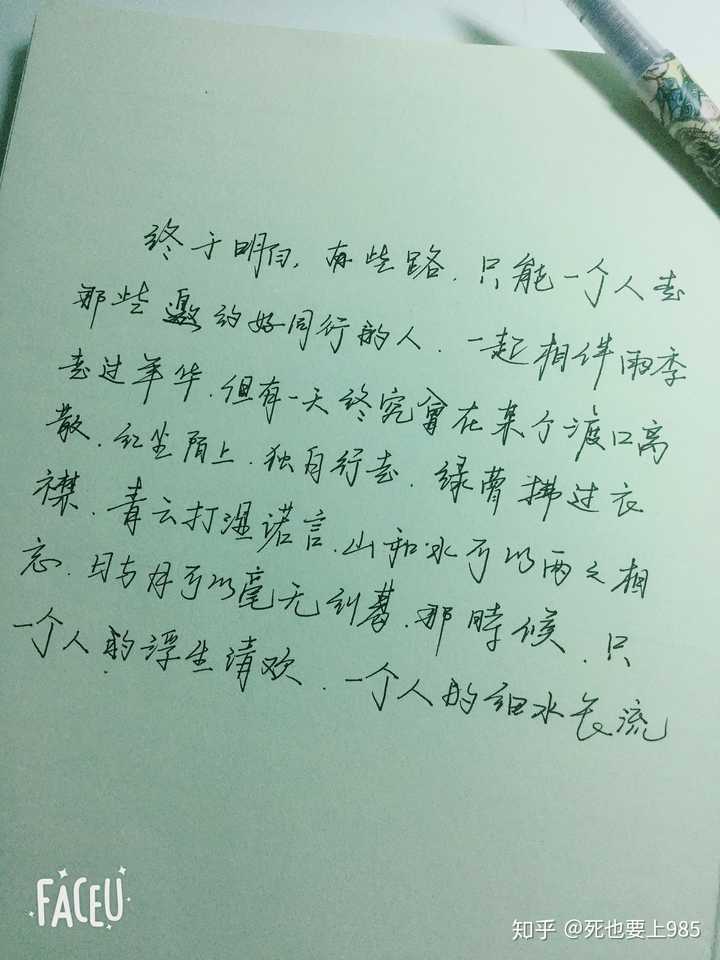 终于明白，有些路，只能一个人走
那些邀约好同行的人，一起相伴雨季
走过年华，但有一天终究会在某个渡口离
散，红尘陌上，独自行走，绿萝拂过衣
襟，青云打湿诺言，山和水可以两两相
忘，日与月可以毫无纠葛，那时候，只
一个人的浮生清欢，一个人的细水长流
FACEU
知乎 @死也要上985